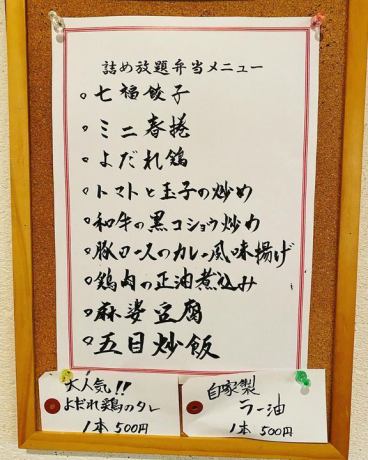 詰め放題弁当メニュー
○七福餃子
○ミニ春捲
○よだれ鶏
○トマトと玉子の炒め
○和牛の黒コショウ炒め
○豚ロースのカレー風味揚げ
○鶏肉の正油煮込み
○麻婆豆腐
○五目炒飯
大人気!!
よだれ鶏のタレ
1本500円
自家製
ラー油
1本 500円